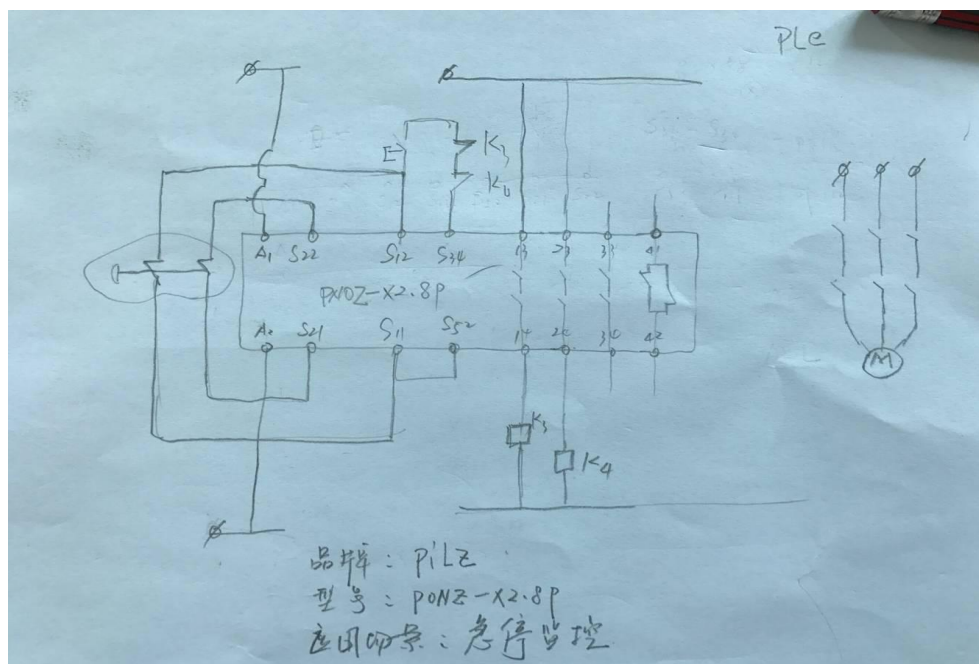 PLe
K3
K4
A1 S22 S12 S34 13 23 33 41
PNOZ-X2.8P
A2 S21 S11 S52 14 24 34 42
K3
K4
M
品牌：PiLZ
型号：PONZ-X2.8P
应用场景：急停监控